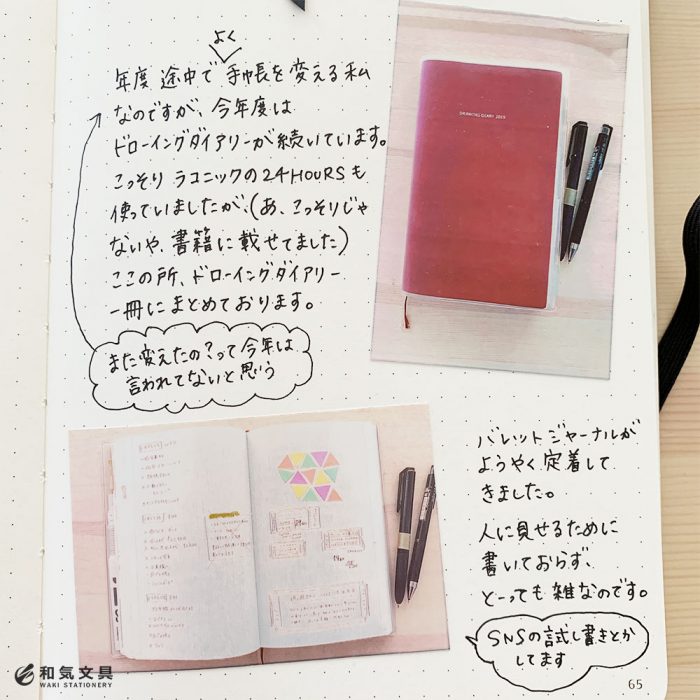 よく
年度途中で手帳を変える私
なのですが、今年度は
ドローイングダイアリーが続いています。
こっそり ラコニックの24HOURSも
使っていましたが、(あ、こっそりじゃ
ないや、書籍に載せてました)
ここの所、ドローイングダイアリー
一冊にまとめております。
また変えたの?って今年は
言われてないと思う
DRAWING DIARY 2019
バレットジャーナルが
ようやく定着して
きました。
人に見せるために
書いておらず、
とーっても雑なのです。
SNSの試し書きとか
してます
和気文具
WAKI STATIONERY
65